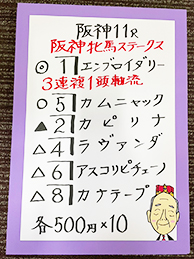 阪神11R
阪神牝馬ステークス
◎ 1 エンブロイダリー
3連複1頭軸流
○ 5 カムニャック
▲ 2 カピリナ
△ 4 ラヴァンダ
△ 6 アスコリピチェーノ
△ 8 カナテープ
各500円×10